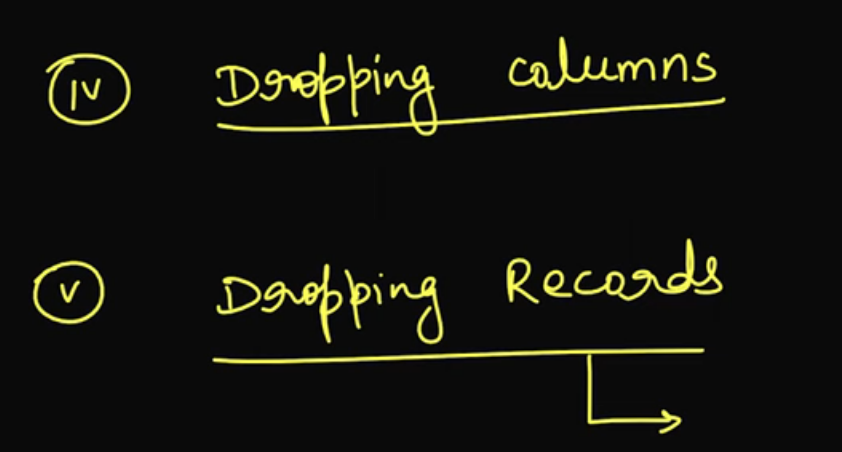 IV Dropping columns
V Dropping Records